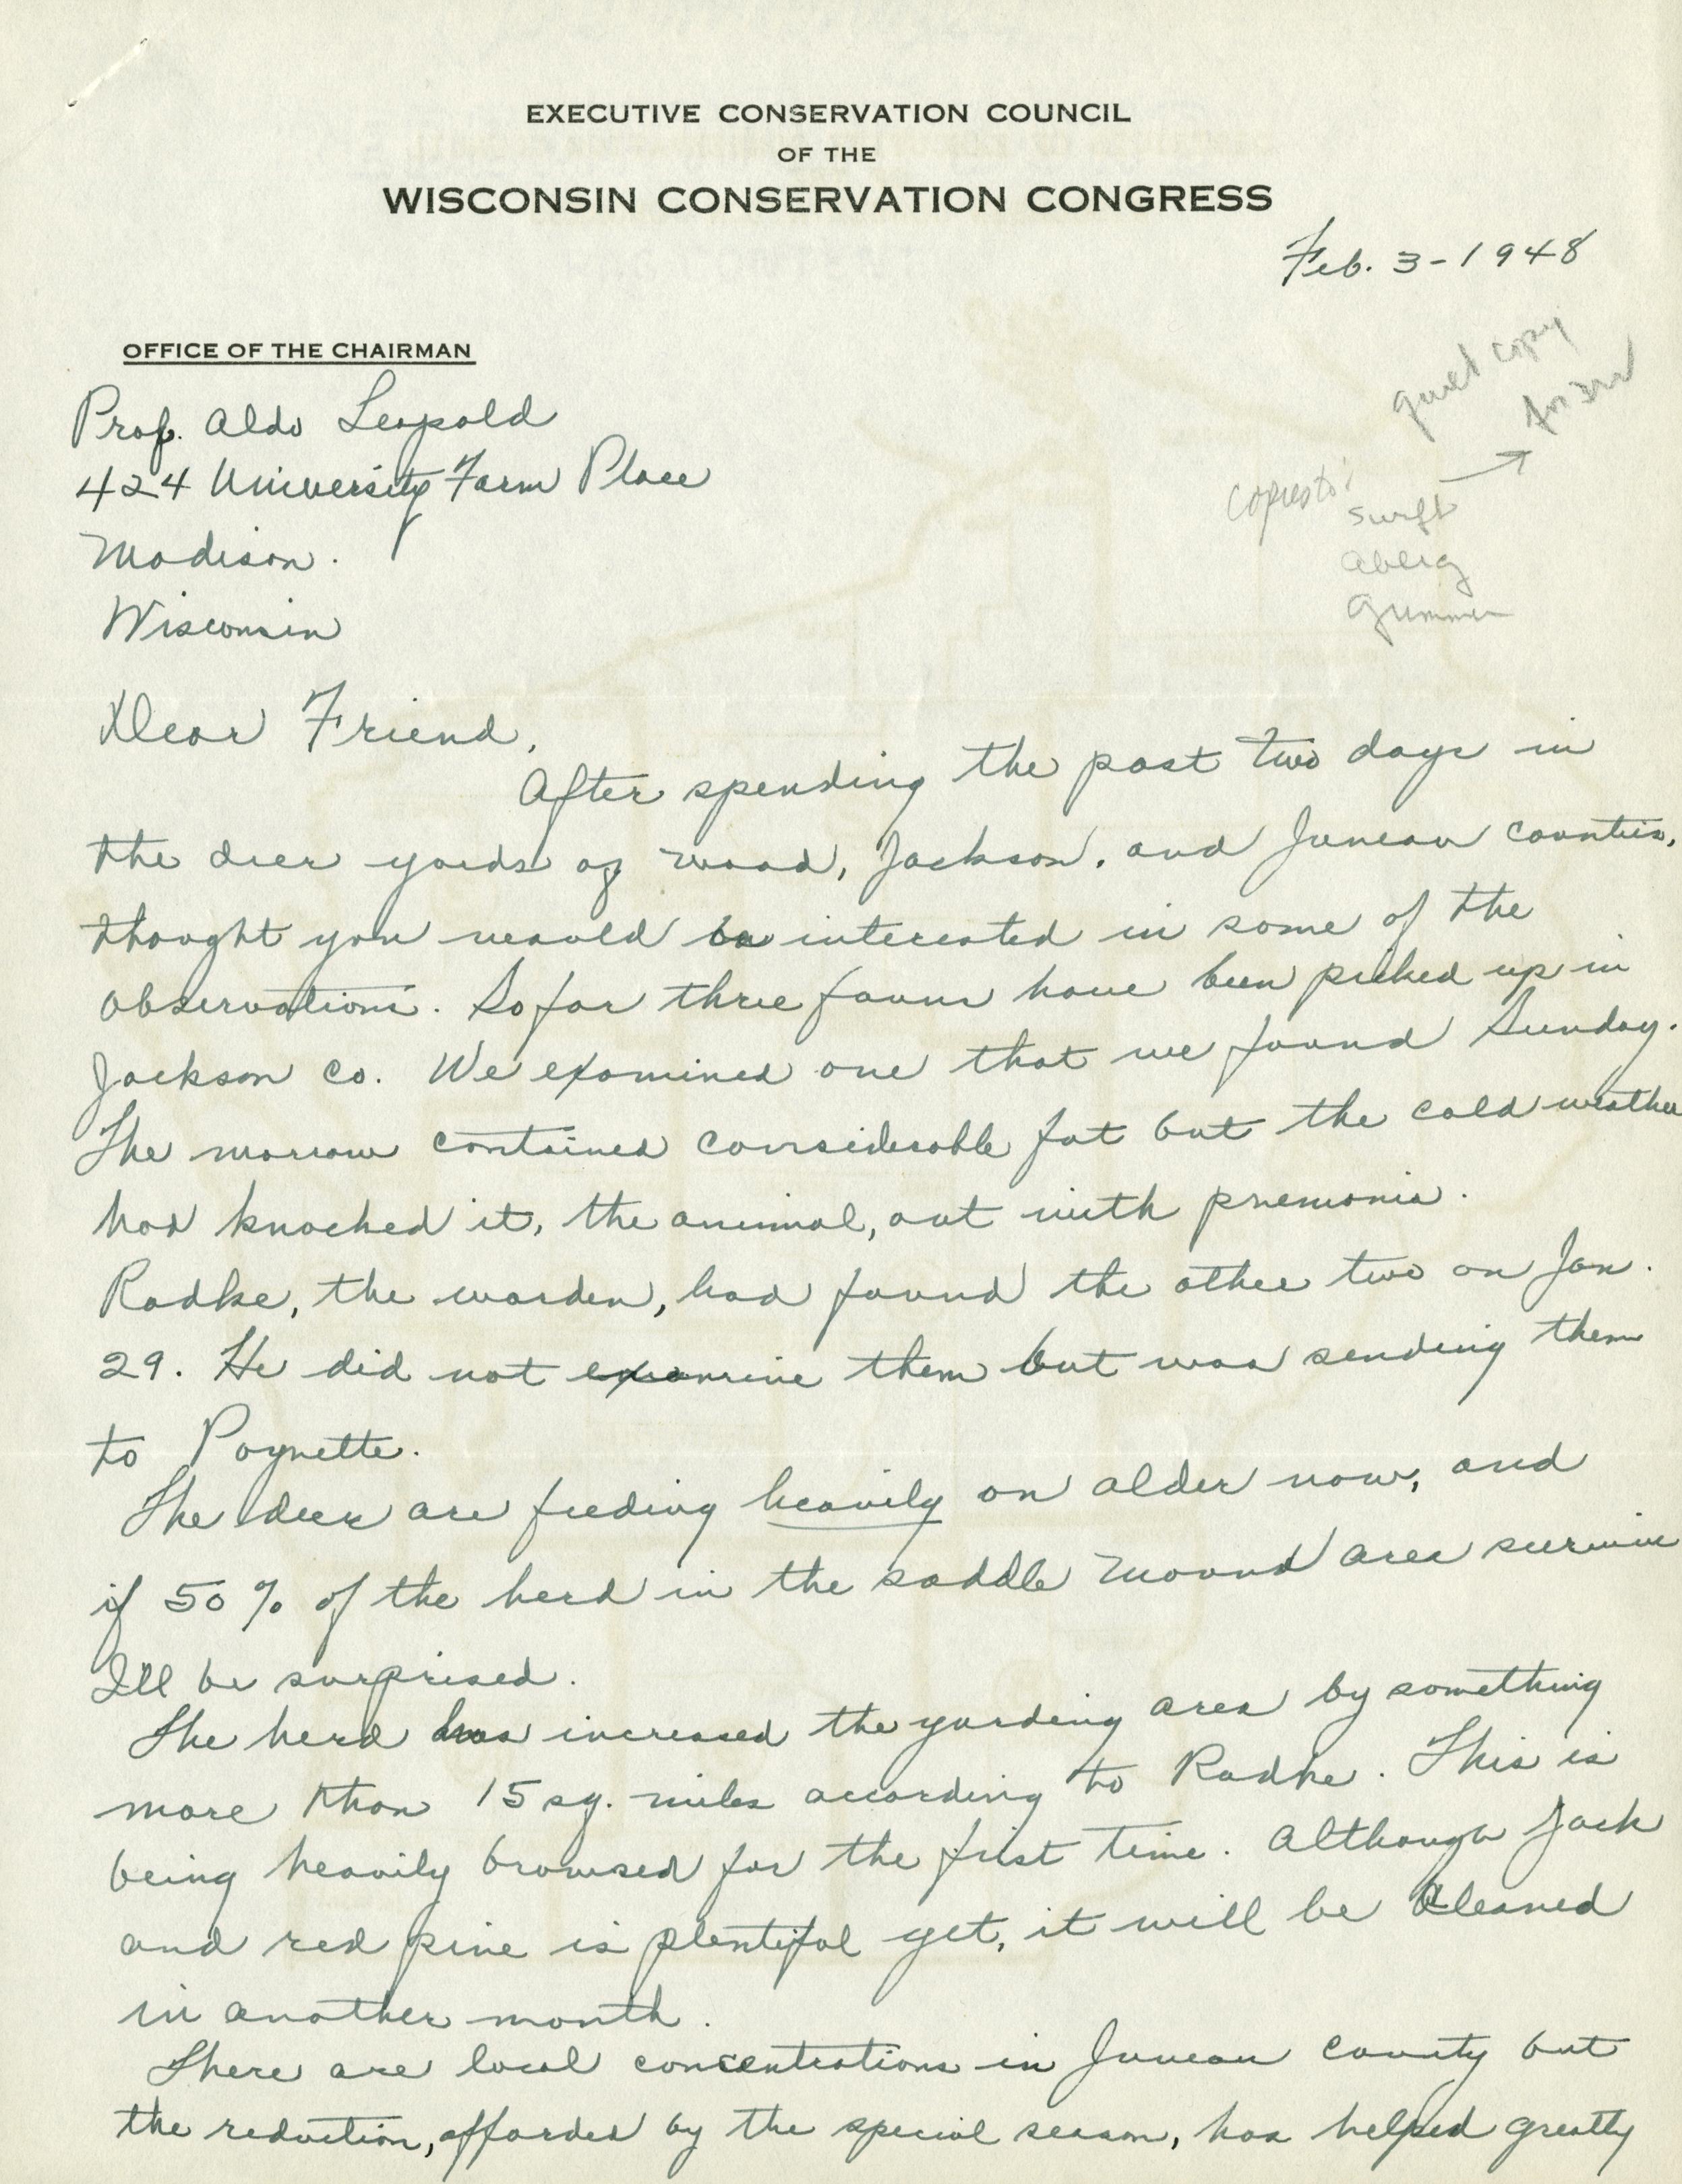 EXECUTIVE CONSERVATION COUNCIL
OF THE
WISCONSIN CONSERVATION CONGRESS
Feb. 3-1948
OFFICE OF THE CHAIRMAN
Prof. Aldo Leopold
424 University Farm Place
Madison.
Wisconsin
copy
Answer
Copies to:
Swift
Aberg
Grimmer
Dear Friend,
After spending the past two days in
the deer yards of Wood, Jackson, and Juneau counties,
thought you would be interested in some of the
observations. So far three fawns have been picked up in
Jackson Co. We examined one that we found Sunday.
The marrow contained considerable fat but the cold weather
had knocked it, the animal, out with pnemonia.
Radke, the warden, had found the other two on Jan.
29. He did not examine them but was sending them
to Poynette.
The deer are feeding heavily on alder now, and
if 50% of the herd in the saddle mound area survive
I'll be surprised.
The herd has increased the yarding area by something
more than 15 sq. miles according to Radke. This is
being heavily browsed for the first time. Although Jack
and red pine is plentiful yet, it will be cleaned
in another month.
There are local concentrations in Juneau county but
the reduction, afforded by the special season, has helped greatly